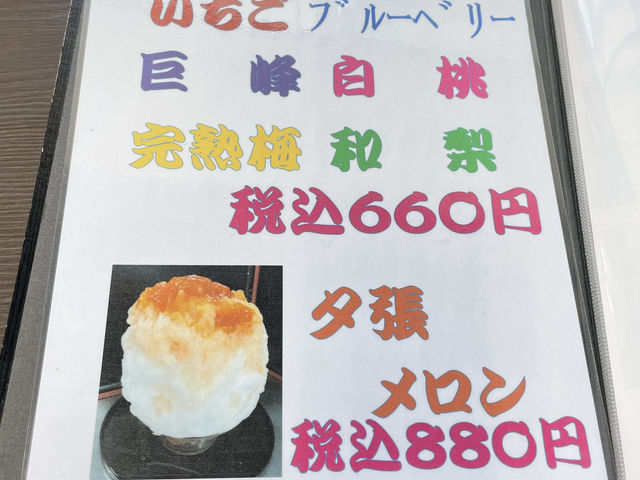 いちご ブルーベリー
巨峰 白桃
完熟梅 和梨
税込660円
夕張
メロン
税込880円